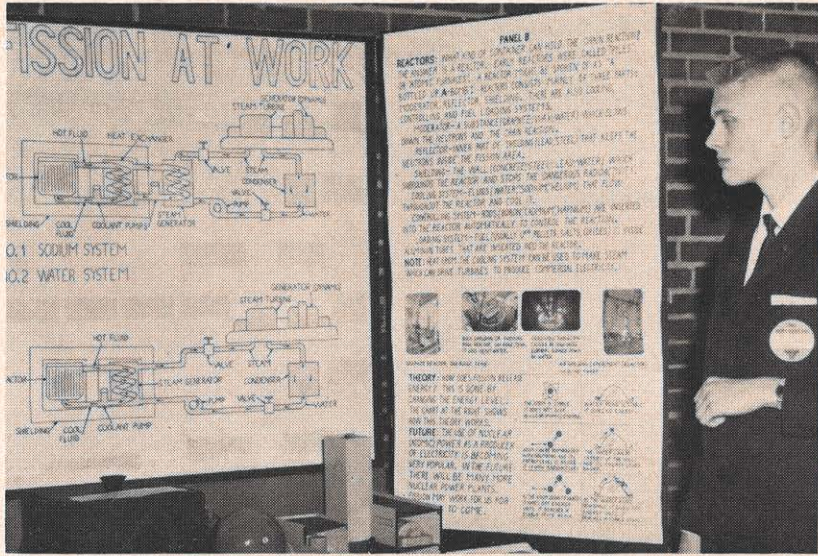 FISSION AT WORK
HOT FLUID
HEAT EXCHANGER
STEAM TURBINE
GENERATOR DYNAMO
VALVE
STEAM
CONDENSER
VALVE
PUMP
WATER
SHIELDING
COOL FLUID
COOLANT PUMPS
STEAM GENERATOR
NO.1 SODIUM SYSTEM
NO.2 WATER SYSTEM
STEAM TURBINE
GENERATOR DYNAMO
HOT FLUID
VALVE
STEAM
STEAM GENERATOR
CONDENSER
PUMP
VALVE
WATER
SHIELDING
COOL FLUID
COOLANT PUMP
PANEL B
REACTORS: WHAT KIND OF CONTAINER CAN HOLD THE CHAIN REACTION?
THE ANSWER IS A REACTOR. EARLY REACTORS WERE CALLED "PILES"
OR ATOMIC FURNACES. A REACTOR MIGHT BE SPOKEN OF AS "A
BOTTLED UP A-BOMB". REACTORS CONSIST MAINLY OF THREE PARTS:
MODERATOR, REFLECTOR, SHIELDING. THERE ARE ALSO COOLING,
CONTROLLING AND FUEL LOADING SYSTEMS.
MODERATOR-A SUBSTANCE (GRAPHITE WAX WATER) WHICH SLOWS
DOWN THE NEUTRONS AND THE CHAIN REACTION.
REFLECTOR-INNER PART OF SHIELDING (LEAD, STEEL) THAT KEEPS THE
NEUTRONS INSIDE THE FISSION AREA.
SHIELDING-THE WALL (CONCRETE STEEL LEAD WATER) WHICH
SURROUNDS THE REACTOR AND STOPS THE DANGEROUS RADIOACTIVITY.
COOLING SYSTEM-FLUIDS (WATER SODIUM HELIUM) THAT FLOW
THROUGHOUT THE REACTOR AND COOL IT.
CONTROLLING SYSTEM-RODS (BORON CADMIUM HAFNIUM) ARE INSERTED
INTO THE REACTOR AUTOMATICALLY TO CONTROL THE REACTION.
LOADING SYSTEM-FUEL (USUALLY PELLETS, SALTS, OXIDES) INSIDE
ALUMINUM TUBES THAT ARE INSERTED INTO THE REACTOR.
NOTE: HEAT FROM THE COOLING SYSTEM CAN BE USED TO MAKE STEAM
WHICH CAN DRIVE TURBINES TO PRODUCE COMMERCIAL ELECTRICITY.
THEORY: HOW DOES FISSION RELEASE
ENERGY? THIS IS DONE BY
CHANGING THE ENERGY LEVEL.
THE CHART AT THE RIGHT SHOWS
HOW THIS THEORY WORKS.
FUTURE: THE USE OF NUCLEAR
(ATOMIC) POWER AS A PRODUCER
OF ELECTRICITY IS BECOMING
VERY POPULAR. IN THE FUTURE
THERE WILL BE MANY MORE
NUCLEAR POWER PLANTS.
FISSION MAY WORK FOR US FOR
TO COME.